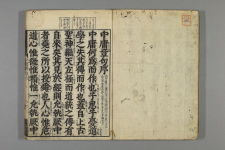 中庸章句序
中庸何為而作也子思子憂道
學之失其傳而作也蓋自上古
聖神繼天立極而道統之傳有
自來矣其見於經則允執厥中
者堯之所以授舜也人心惟危
道心惟微惟精惟一允執厥中